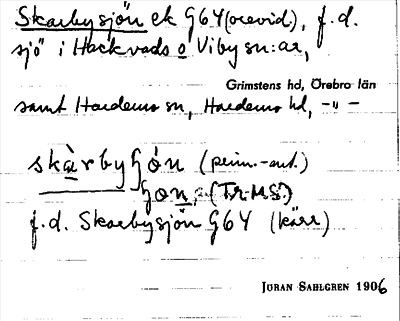 Skarbysjön ek G64 (orevid), f.d.
sjö i Hackvads o Viby sn:ar,
Grimstens hd, Örebro län
samt Hardemo sn, Hardemo hd, -"-
skàrbyhǫ́n (pinn.-aut.)
hǫn, (Tr.MS.)
f.d. Skarbysjön G64 (kärr)
JÖRAN SAHLGREN 1906